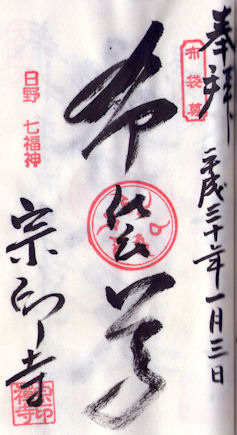 奉拝 平成三十年一月三日
布袋尊
布袋尊
日野 七福神
宗印寺
宗印禅寺